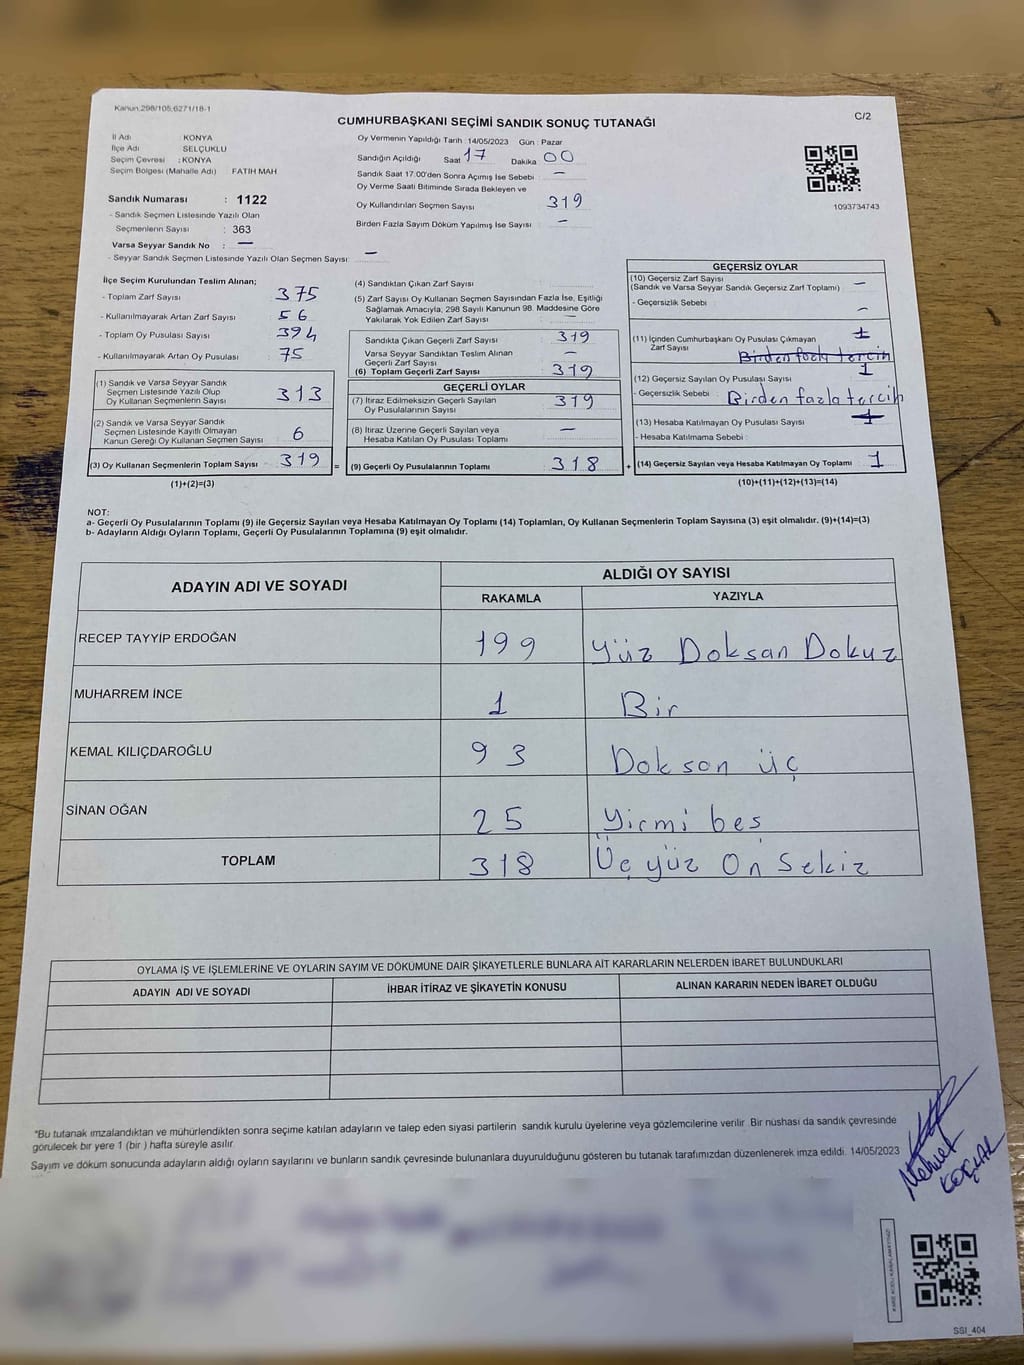 Kanun:298/105,6271/18-1
C/2
CUMHURBAŞKANI SEÇİMİ SANDIK SONUÇ TUTANAĞI
İl Adı KONYA
İlçe Adı SELÇUKLU
Seçim Çevresi : KONYA
Seçim Bölgesi (Mahalle Adı) : FATİH MAH
Sandık Numarası : 1122
- Sandık Seçmen Listesinde Yazılı Olan
Seçmenlerin Sayısı : 363
Varsa Seyyar Sandık No : —
- Seyyar Sandık Seçmen Listesinde Yazılı Olan Seçmen Sayısı: —
Oy Vermenin Yapıldığı Tarih : 14/05/2023 Gün : Pazar
Sandığın Açıldığı Saat 17 Dakika 00
Sandık Saat 17:00'den Sonra Açımış İse Sebebi : —
Oy Verme Saati Bitiminde Sırada Bekleyen ve
Oy Kullandırılan Seçmen Sayısı 319
Birden Fazla Sayım Döküm Yapılmış İse Sayısı : —
1093734743
İlçe Seçim Kurulundan Teslim Alınan;
- Toplam Zarf Sayısı : 375
- Kullanılmayarak Artan Zarf Sayısı : 56
- Toplam Oy Pusulası Sayısı : 394
- Kullanılmayarak Artan Oy Pusulası : 75
(1) Sandık ve Varsa Seyyar Sandık
Seçmen Listesinde Yazılı Olup
Oy Kullanan Seçmenlerin Sayısı : 313
(2) Sandık ve Varsa Seyyar Sandık
Seçmen Listesinde Kayıtlı Olmayan
Kanun Gereği Oy Kullanan Seçmen Sayısı : 6
(3) Oy Kullanan Seçmenlerin Toplam Sayısı : 319 =
(1)+(2)=(3)
(4) Sandıktan Çıkan Zarf Sayısı :
(5) Zarf Sayısı Oy Kullanan Seçmen Sayısından Fazla İse, Eşitliği
Sağlamak Amacıyla, 298 Sayılı Kanunun 98. Maddesine Göre
Yakılarak Yok Edilen Zarf Sayısı : —
Sandıkta Çıkan Geçerli Zarf Sayısı : 319
Varsa Seyyar Sandıktan Teslim Alınan
Geçerli Zarf Sayısı : —
(6) Toplam Geçerli Zarf Sayısı : 319
GEÇERLİ OYLAR
(7) İtiraz Edilmeksizin Geçerli Sayılan
Oy Pusulalarının Sayısı : 319
(8) İtiraz Üzerine Geçerli Sayılan veya
Hesaba Katılan Oy Pusulası Toplamı : —
(9) Geçerli Oy Pusulalarının Toplamı : 318 +
GEÇERSİZ OYLAR
(10) Geçersiz Zarf Sayısı
(Sandık ve Varsa Seyyar Sandık Geçersiz Zarf Toplamı) : —
- Geçersizlik Sebebi : —
(11) İçinden Cumhurbaşkanı Oy Pusulası Çıkmayan
Zarf Sayısı : 1
Birden fazla tercih
(12) Geçersiz Sayılan Oy Pusulası Sayısı : 1
- Geçersizlik Sebebi : Birden fazla tercih
(13) Hesaba Katılmayan Oy Pusulası Sayısı : 1
- Hesaba Katılmama Sebebi :
(14) Geçersiz Sayılan veya Hesaba Katılmayan Oy Toplamı : 1
(10)+(11)+(12)+(13)=(14)
NOT:
a- Geçerli Oy Pusulalarının Toplamı (9) ile Geçersiz Sayılan veya Hesaba Katılmayan Oy Toplamı (14) Toplamları, Oy Kullanan Seçmenlerin Toplam Sayısına (3) eşit olmalıdır. (9)+(14)=(3)
b- Adayların Aldığı Oyların Toplamı, Geçerli Oy Pusulalarının Toplamına (9) eşit olmalıdır.
ADAYIN ADI VE SOYADI ALDIĞI OY SAYISI
RAKAMLA YAZIYLA
RECEP TAYYİP ERDOĞAN 199 Yüz Doksan Dokuz
MUHARREM İNCE 1 Bir
KEMAL KILIÇDAROĞLU 93 Doksan üç
SİNAN OĞAN 25 Yirmi beş
TOPLAM 318 Üç yüz On Sekiz
OYLAMA İŞ VE İŞLEMLERİNE VE OYLARIN SAYIM VE DÖKÜMÜNE DAİR ŞİKAYETLERLE BUNLARA AİT KARARLARIN NELERDEN İBARET BULUNDUKLARI
ADAYIN ADI VE SOYADI İHBAR İTİRAZ VE ŞİKAYETİN KONUSU ALINAN KARARIN NEDEN İBARET OLDUĞU
*Bu tutanak imzalandıktan ve mühürlendikten sonra seçime katılan adayların ve talep eden siyasi partilerin sandık kurulu üyelerine veya gözlemcilerine verilir. Bir nüshası da sandık çevresinde
görülecek bir yere 1 (bir) hafta süreyle asılır.
Sayım ve döküm sonucunda adayların aldığı oyların sayılarını ve bunların sandık çevresinde bulunanlara duyurulduğunu gösteren bu tutanak tarafımızdan düzenlenerek imza edildi. 14/05/2023
Mehmet
SSI_404